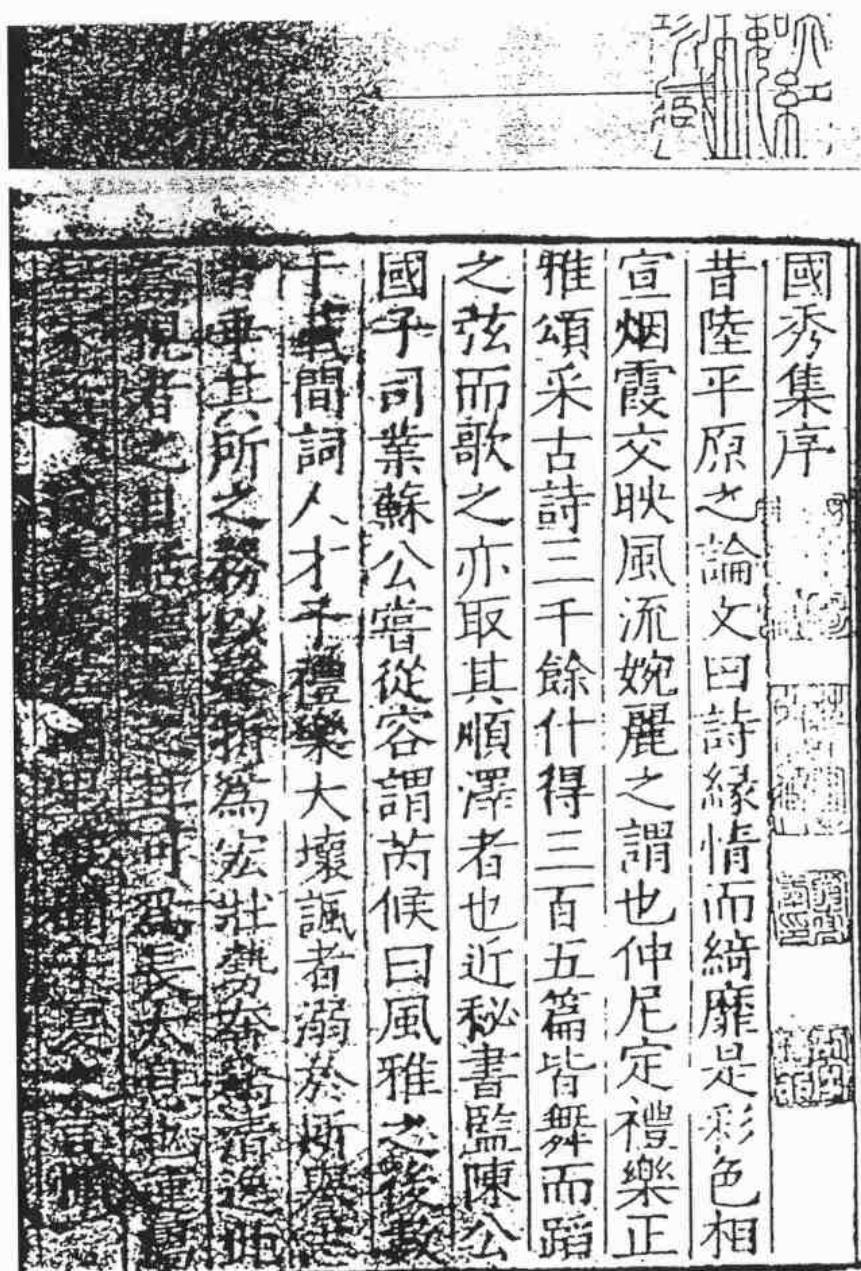 國秀集序
昔陸平原之論文曰詩緣情而綺靡是彩色相
宣烟霞交映風流婉麗之謂也仲尼定禮樂正
雅頌采古詩三千餘什得三百五篇皆舞而蹈
之弦而歌之亦取其順澤者也近秘書監陳公
國子司業蘇公嘗從容謂芮候曰風雅之後數
千載間詞人才子禮樂大壞諷者溺於所譽志
者乖其所之務以聲折爲宏壯勢奔爲清逸此
視者之目聒聽者之耳可爲長太息也運屬
夏之言